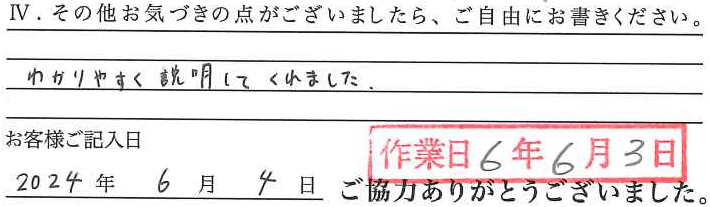 Ⅳ．その他お気づきの点がございましたら、ご自由にお書きください。
わかりやすく説明してくれました．
お客様ご記入日
作業日6年6月3日
2024年 6月 4日 ご協力ありがとうございました。